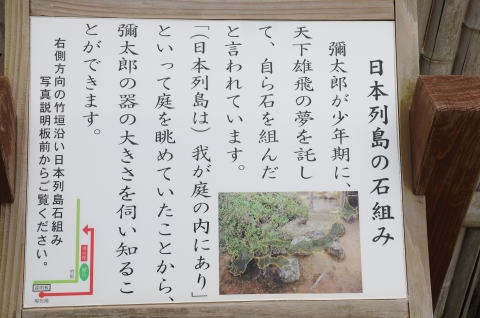 日本列島の石組み
彌太郎が少年期に、
天下雄飛の夢を託し
て、自ら石を組んだ
と言われています。
「(日本列島は)我が庭の内にあり」
といって庭を眺めていたことから、
彌太郎の器の大きさを伺い知るこ
とができます。
右側方向の竹垣沿い日本列島石組み
写真説明板前からご覧ください。